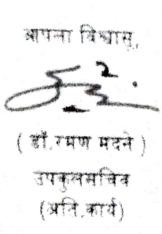 आपना विश्वासु,
( डॉ. रमण मदने )
उपकुलसचिव
(प्रति. कार्य)